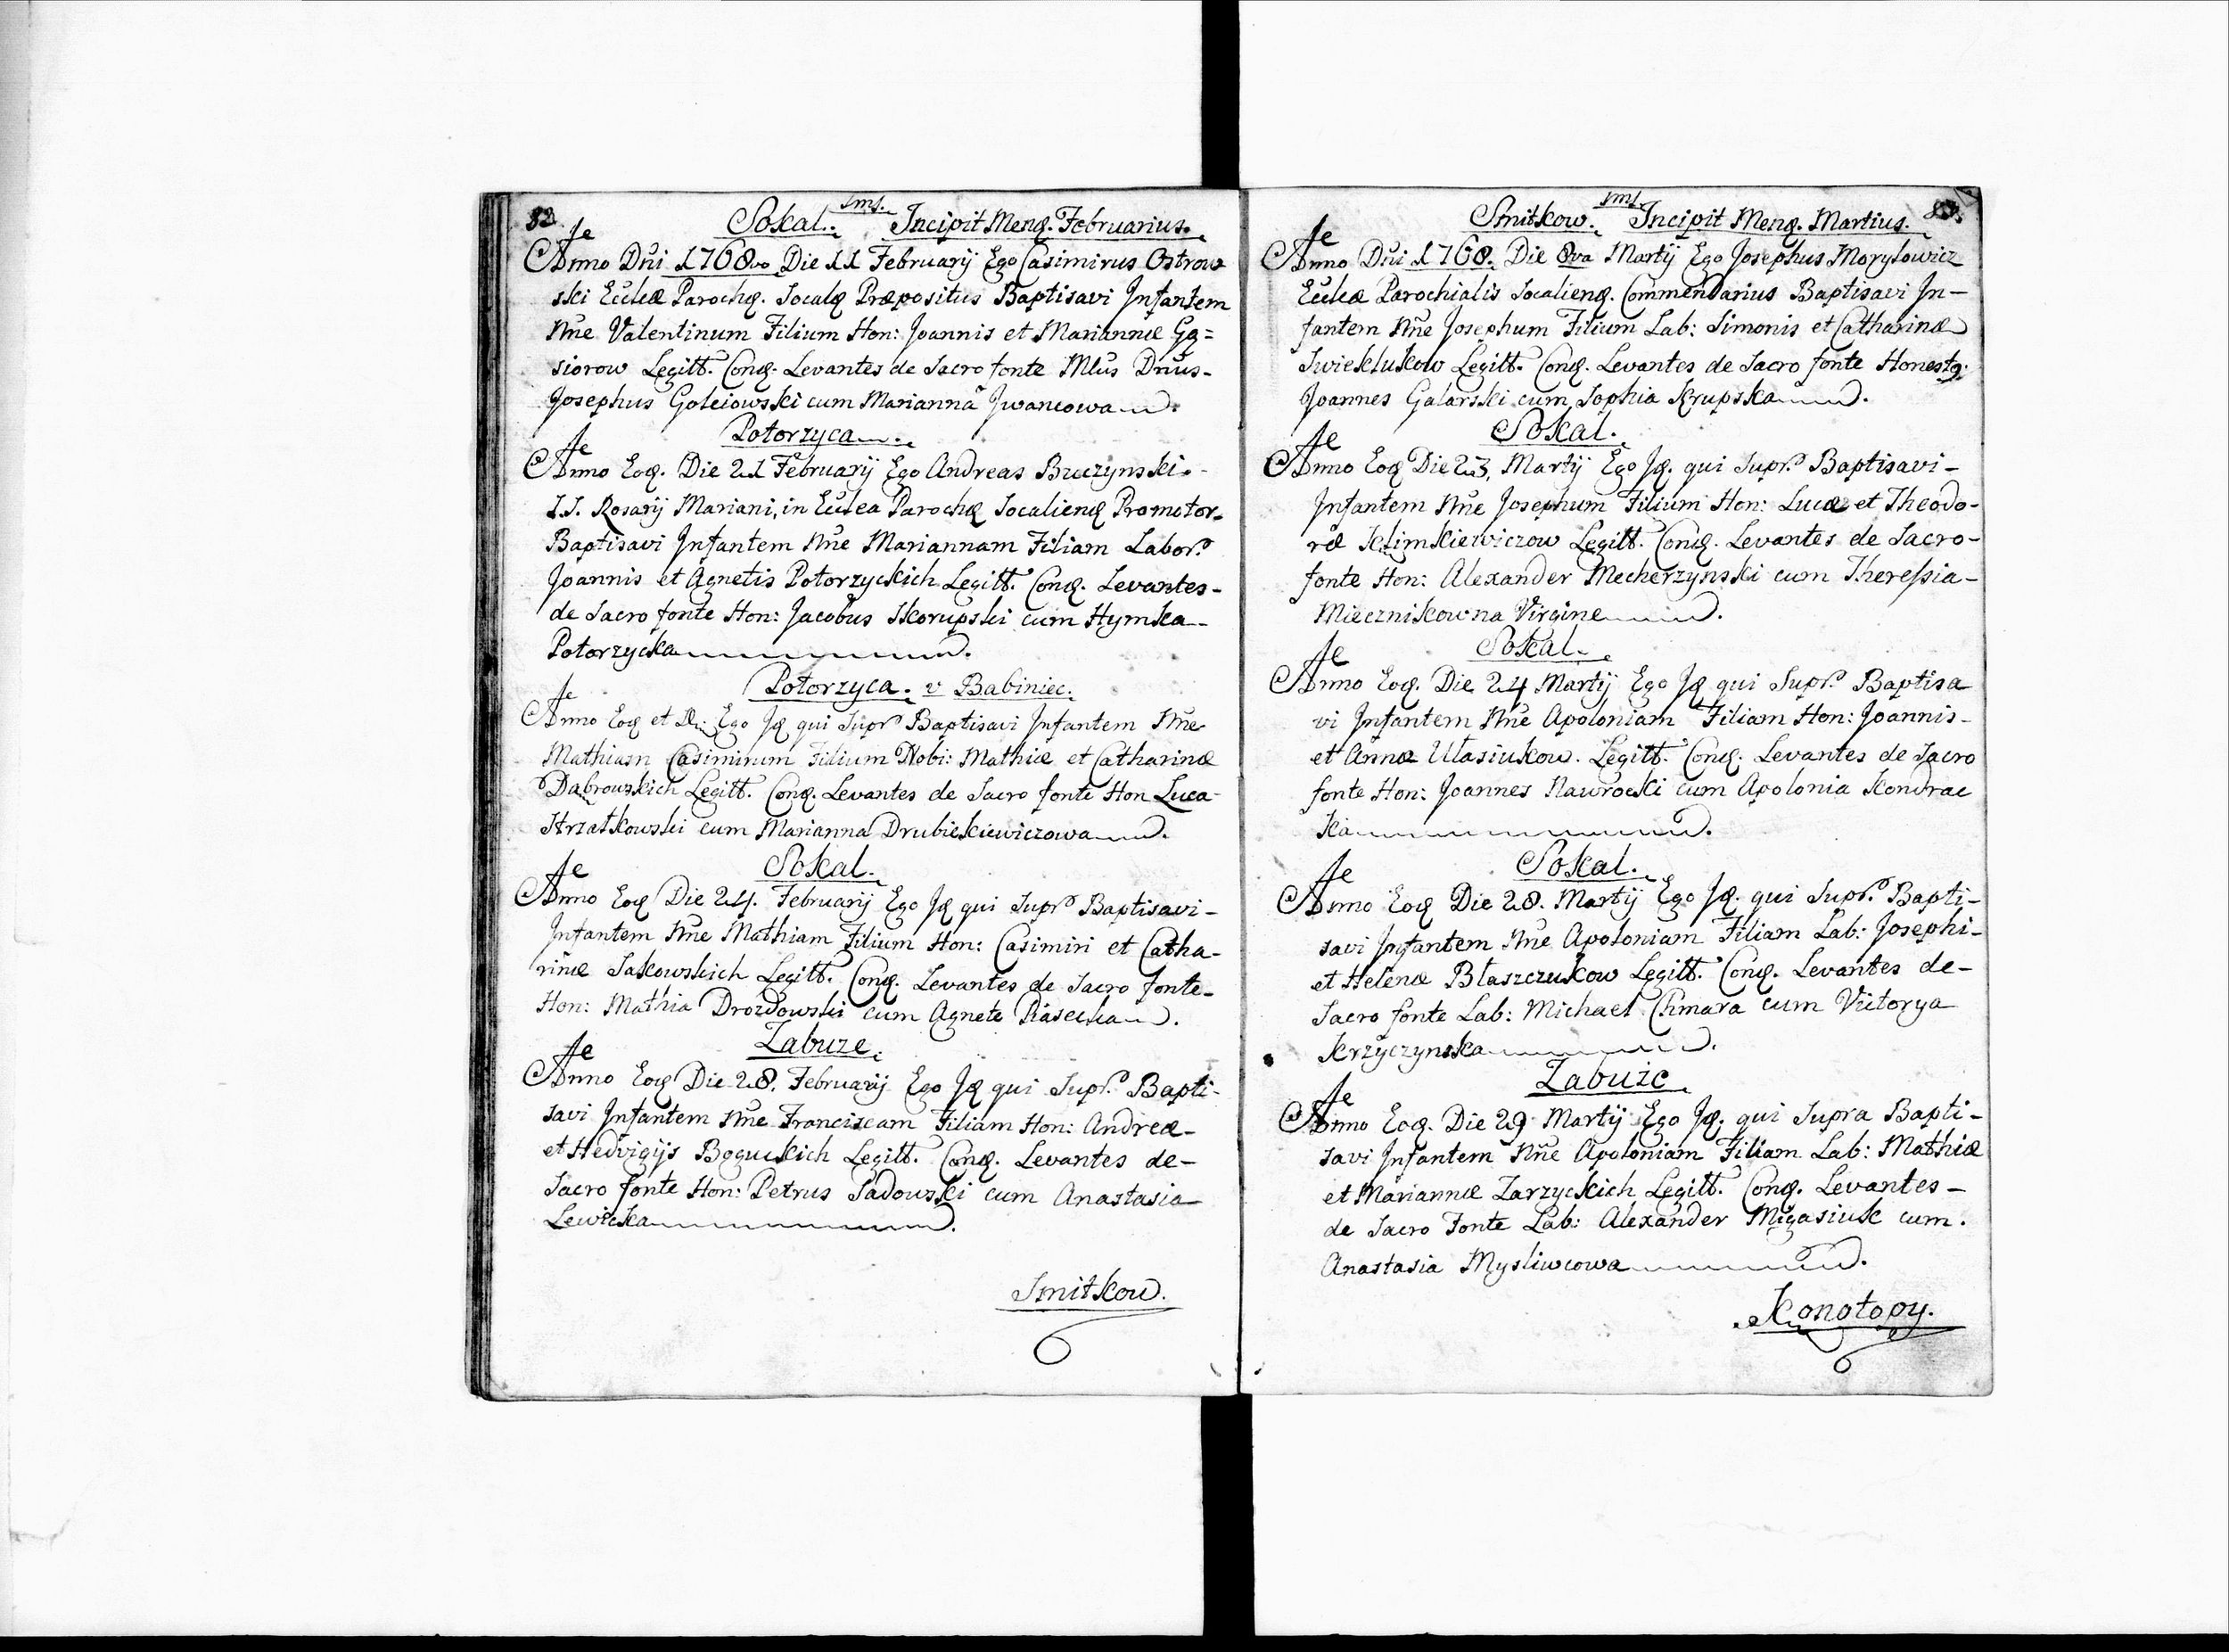 82.
Sokal. Incipit Mensꝫ. Februarius.
Anno Dn̄i 1768vo Die 11 Februarij Ego Casimirus Ostrow
ski Eccl̄æ Parochꝫ. Socalꝫ Præpositus Baptisavi Infantem
Nn̄e Valentinum Filium Hon: Joannis et Mariannæ Gą=
siorow Legitt. Conꝫ. Levantes de Sacro fonte Mlus Dn̄us-
Josephus Goleiowski cum Mariannâ Jwancowa.
Potorzyca.
Anno Eoꝫ. Die 21 Februarij Ego Andreas Buczynski-
S.S. Rosarij Mariani, in Eccl̄ea Parochꝫ Socalienꝫ Promotor-
Baptisavi Infantem Nn̄e Mariannam Filiam Labor.
Joannis et Agnetis Potorzyckich Legitt. Conꝫ. Levantes-
de Sacro fonte Hon: Jacobus Skorupski cum Hymka-
Potorzycka.
Potorzyca. v Babiniec.
Anno Eoꝫ et D: Ego Jꝫ qui Supr Baptisavi Infantem Nn̄e
Mathiam Casimirum Filium Nobi: Mathiæ et Catharinæ
Dąbrowskich Legitt. Conꝫ. Levantes de Sacro fonte Hon Luca-
Strzałkowski cum Marianna Drubickiewiczowa.
Sokal.
Anno Eoꝫ Die 24. Februarij Ego Jꝫ qui Supr Baptisavi-
Infantem Nn̄e Mathiam Filium Hon: Casimiri et Catha-
rinæ Sakowskich Legitt. Conꝫ. Levantes de Sacro fonte-
Hon: Mathia Drozdowski cum Agnete Piasecka.
Zabuze.
Anno Eoꝫ Die 28. Februarij Ego Jꝫ qui Supr. Bapti-
savi Infantem Nn̄e Franciscam Filiam Hon: Andreæ-
et Hedvigijs Boguckich Legitt. Conꝫ. Levantes de-
Sacro fonte Hon: Petrus Sadowski cum Anastasia-
Lewicka.
Smitkow.
83.
Smitkow. Incipit Mensꝫ. Martius.
Anno Dn̄i 1768. Die 8va Martij Ego Josephus Morylowicz
Eccl̄æ Parochialis Socalienꝫ. Commendarius Baptisavi In-
fantem Nn̄e Josephum Filium Lab: Simonis et Catharinæ
Swieklukow Legitt. Conꝫ. Levantes de Sacro fonte Honestꝫ.
Joannes Galarski cum Sophia Krupska.
Sokal.
Anno Eoꝫ Die 23, Martij Ego Jꝫ. qui Supr. Baptisavi-
Infantem Nn̄e Josephum Filium Hon: Lucæ et Theodo-
ræ Klimkiewiczow Legitt. Conꝫ. Levantes de Sacro-
fonte Hon: Alexander Mecherzynski cum Theressia-
Miecznikowna Virgine.
Sokal.
Anno Eoꝫ. Die 24 Martij Ego Jꝫ qui Supr. Baptisa
vi Infantem Nn̄e Apoloniam Filiam Hon: Joannis-
et Annæ Ułasiukow. Legitt. Conꝫ. Levantes de Sacro
fonte Hon: Joannes Nawrocki cum Apolonia Kondrac
ka.
Sokal.
Anno Eoꝫ Die 28. Martij Ego Jꝫ. qui Supr. Bapti-
savi Infantem Nn̄e Apoloniam Filiam Lab: Josephi-
et Helenæ Błaszczukow Legitt. Conꝫ. Levantes de-
Sacro fonte Lab: Michael Chmara cum Victorya
Krzyczynska.
Zabuże
Anno Eoꝫ. Die 29 Martij Ego Jꝫ. qui Supra Bapti-
savi Infantem Nn̄e Apoloniam Filiam Lab: Mathiæ
et Mariannæ Zarzyckich Legitt. Conꝫ. Levantes-
de Sacro Fonte Lab: Alexander Migasiuk cum.
Anastasia Mysliwcowa.
Konotopy.